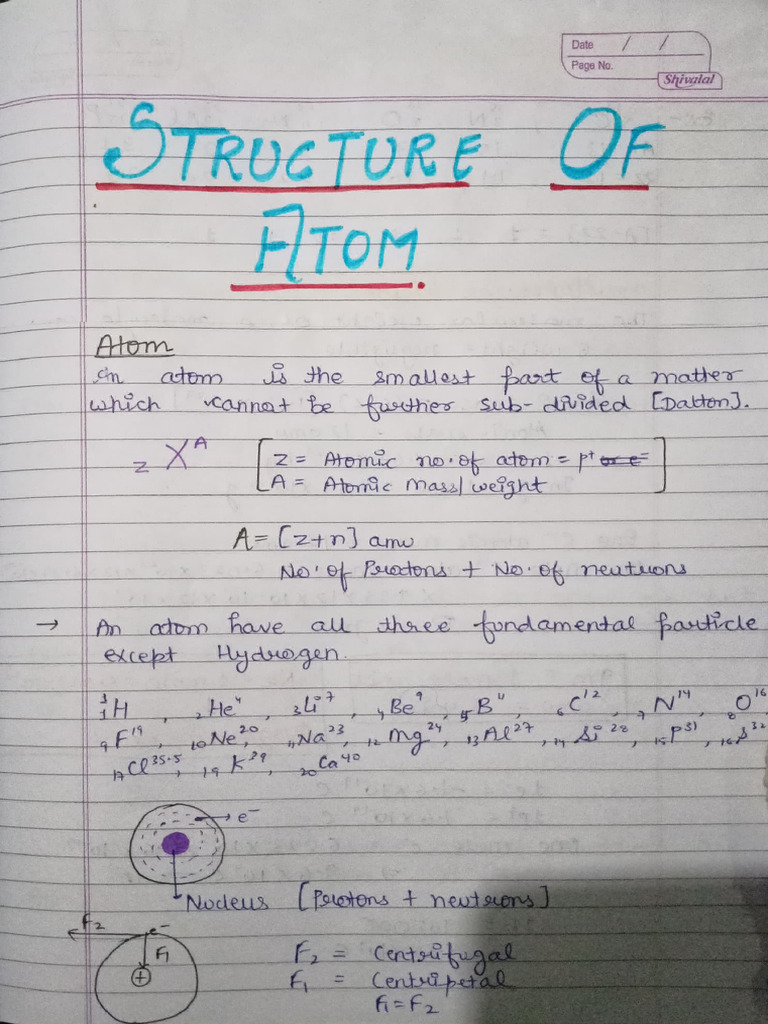 Date / /
Page No.
Shivalal
STRUCTURE OF
ATOM.
Atom
An atom is the smallest part of a matter
which cannot be further sub-divided [Dalton].
zXᴬ
Z = Atomic no. of atom = p⁺ or e⁻
A = Atomic mass/weight
A = [z+n] amu
No. of Protons + No. of neutrons
→ An atom have all three fundamental particle
except Hydrogen.
₁H, ₂He⁴, ₃Li⁷, ₄Be⁹, ₅B¹¹, ₆C¹², ₇N¹⁴, ₈O¹⁶
₉F¹⁹, ₁₀Ne²⁰, ₁₁Na²³, ₁₂Mg²⁴, ₁₃Al²⁷, ₁₄Si²⁸, ₁₅P³¹, ₁₆S³²
₁₇Cl³⁵·⁵, ₁₉K³⁹, ₂₀Ca⁴⁰
e⁻
Nucleus [Protons + neutrons]
F₂ e⁻
F₁
+
F₂ = Centrifugal
F₁ = Centripetal
F₁ = F₂